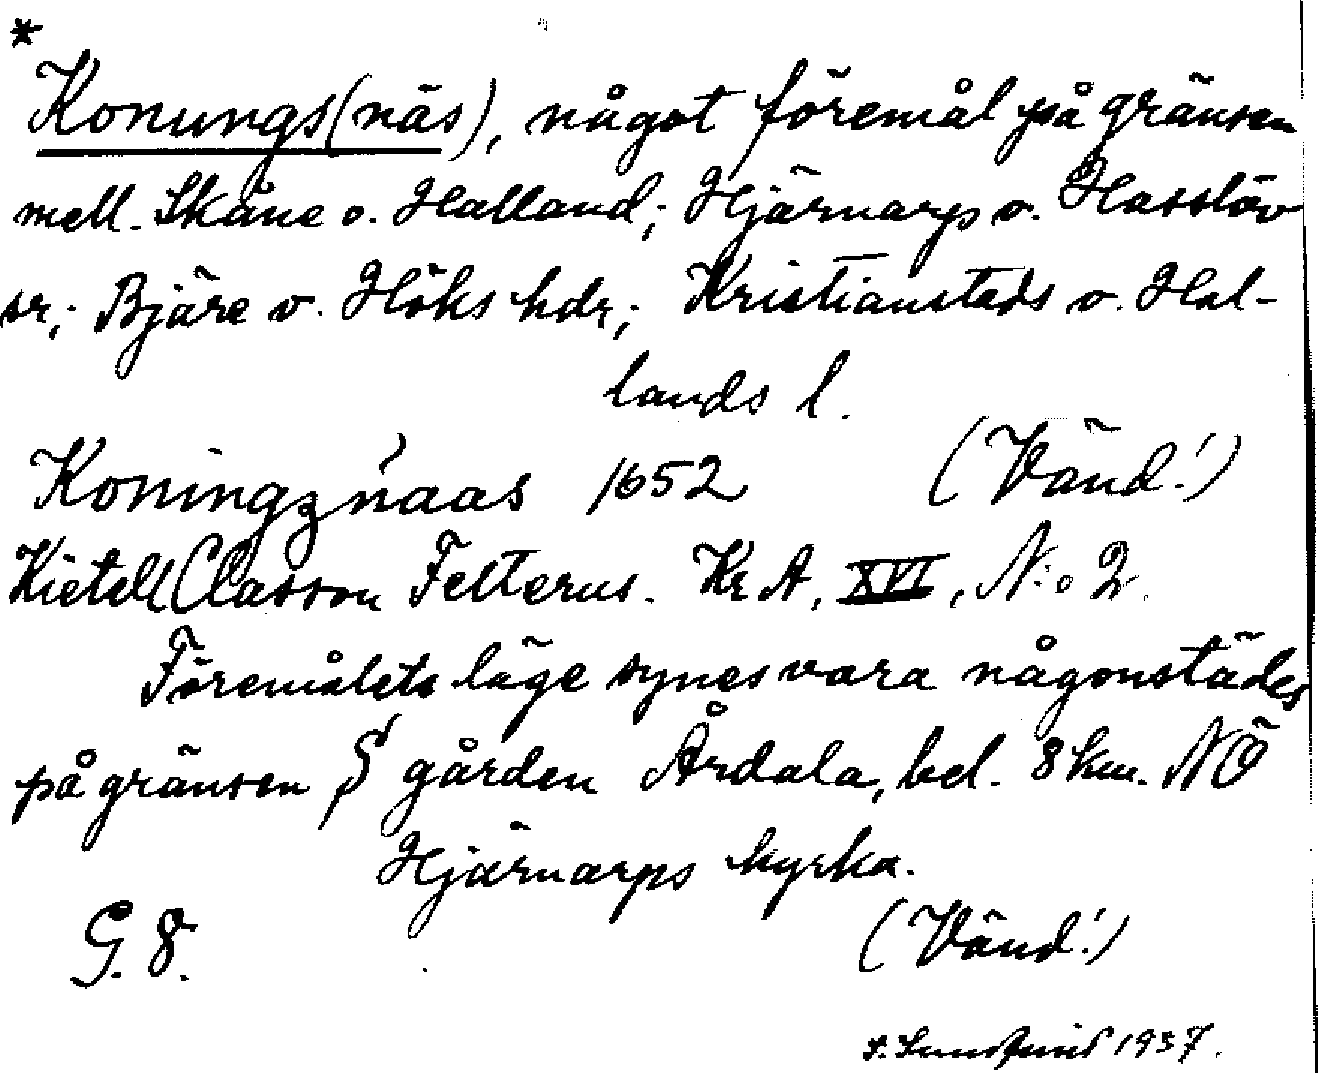 *
Konungs(näs), något föremål på gränsen
mell. Skåne o. Halland; Hjärnarp o. Hasslöv
sr; Bjäre o. Höks hdr; Kristianstads o. Hal-
lands l.
Koningznaas 1652 (Vänd!)
Kietell Classon Felterus. Kr A, XVI, N:o 2.
Föremålets läge synes vara någonstädes
på gränsen S gården Årdala, bel. 8 km. NÖ
Hjärnarps kyrka.
G. 8. (Vänd!)
1937.